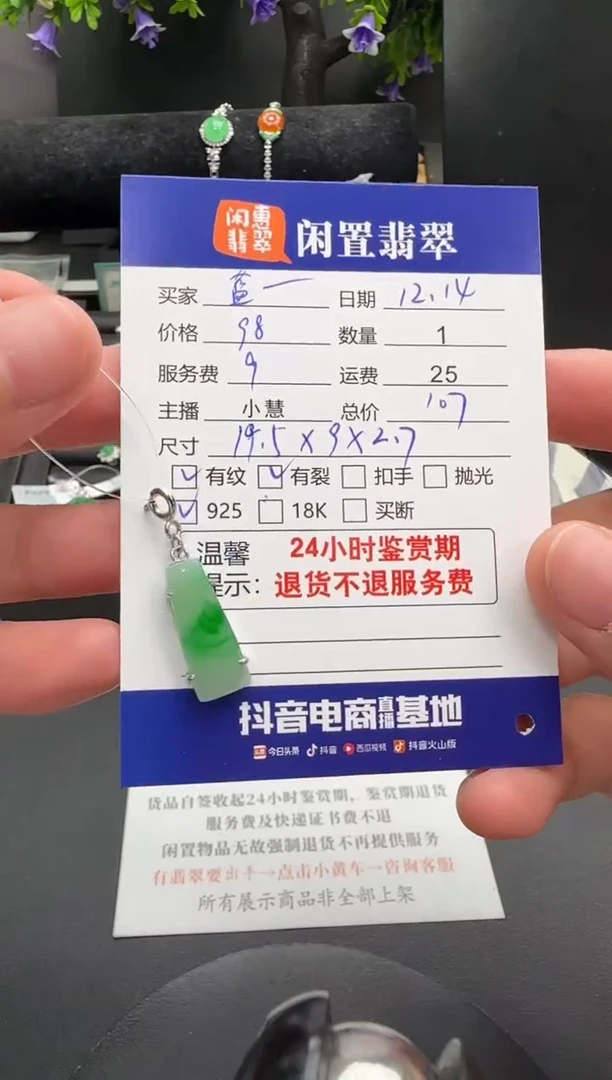 闲惠翡翠 闲置翡翠
买家 蓝一 日期 12.14
价格 98 数量 1
服务费 9 运费 25
主播 小慧 总价 107
尺寸 19.5×9×2.7
有纹 有裂 扣手 抛光
925 18K 买断
温馨 24小时鉴赏期
提示：退货不退服务费
抖音电商直播基地
头条 今日头条 抖音 西瓜视频 抖音火山版
货品自签收起24小时鉴赏期，鉴赏期退货
服务费及快递证书费不退
闲置物品无故强制退货不再提供服务
有翡翠要出手→点击小黄车→咨询客服
所有展示商品非全部上架